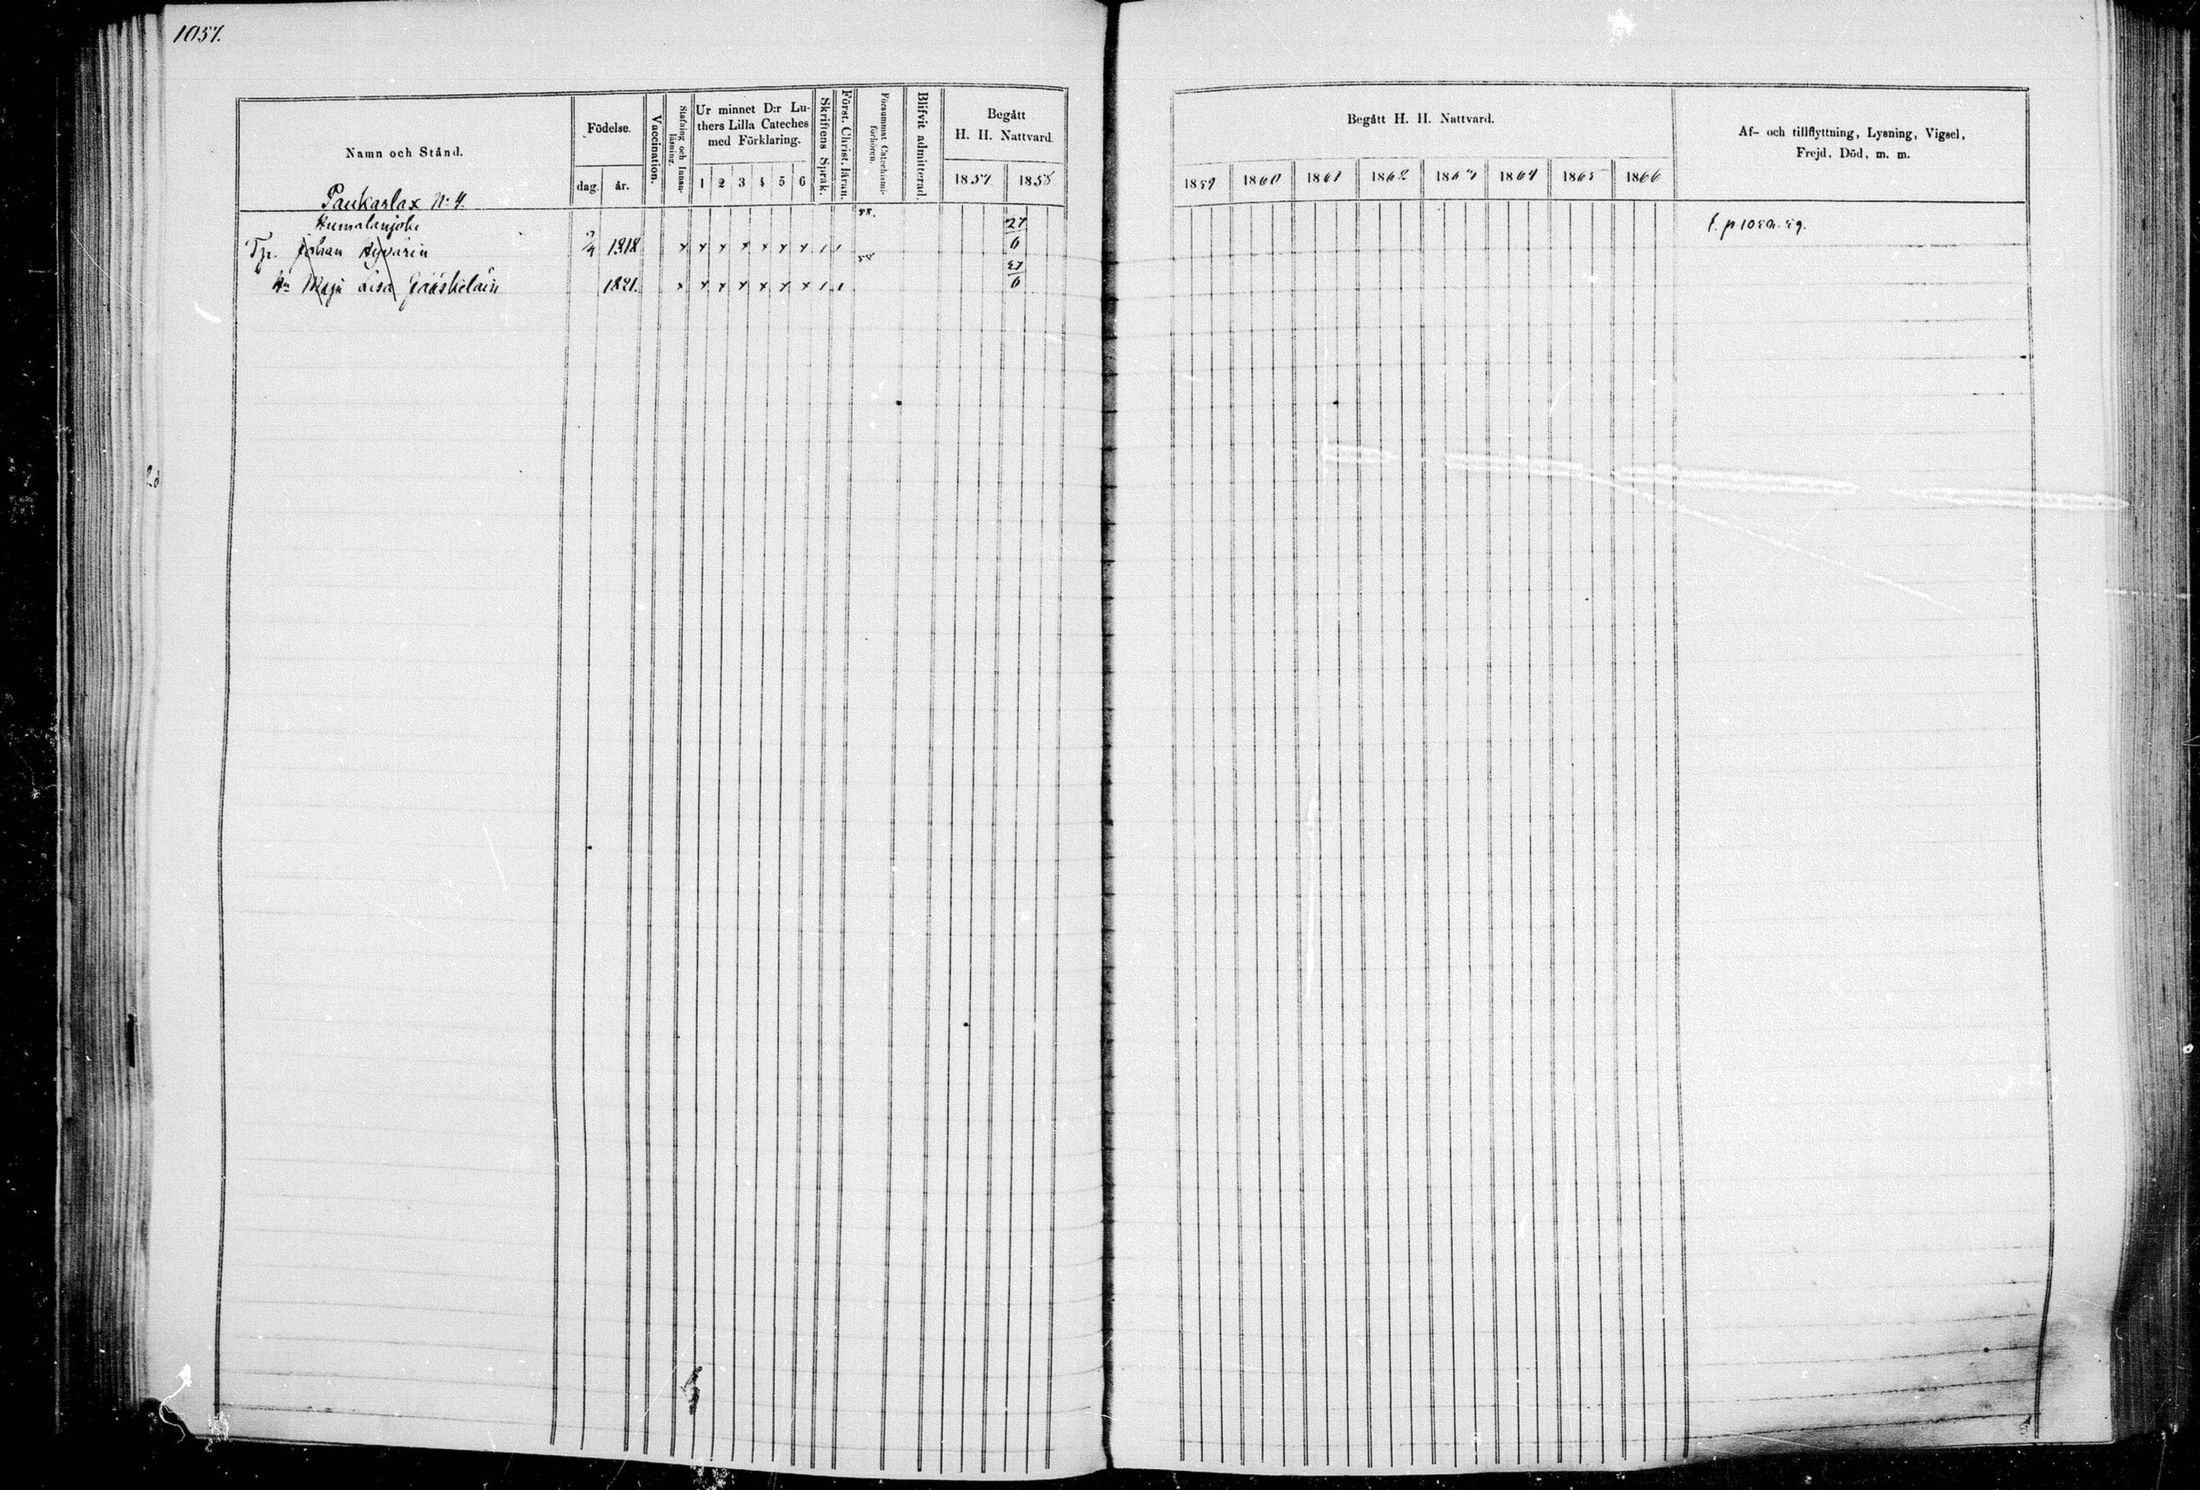 1057.
Namn och Stånd.
Födelse.
dag. år.
Vaccination.
Stafning och Innanläsning.
Ur minnet D:r Lu-
thers Lilla Cateches
med Förklaring.
1 2 3 4 5 6
Skriftens Språk.
Först. Christ. läran.
Försummat Catechismi-
förhören.
Blifvit admitterad.
Begått
H. H. Nattvard.
1857 1858
Paukarlax No 4.
Humalanjoki
Tp. Johan Hyvärin 1818 x x x x x x x 58. 27/6
Hu Maja Lisa Jääskeläin 1821. x x x x x x x 58 27/6
Begått H. H. Nattvard.
1859 1860 1861 1862 1863 1864 1865 1866
Af- och tillflyttning, Lysning, Vigsel,
Frejd, Död, m. m.